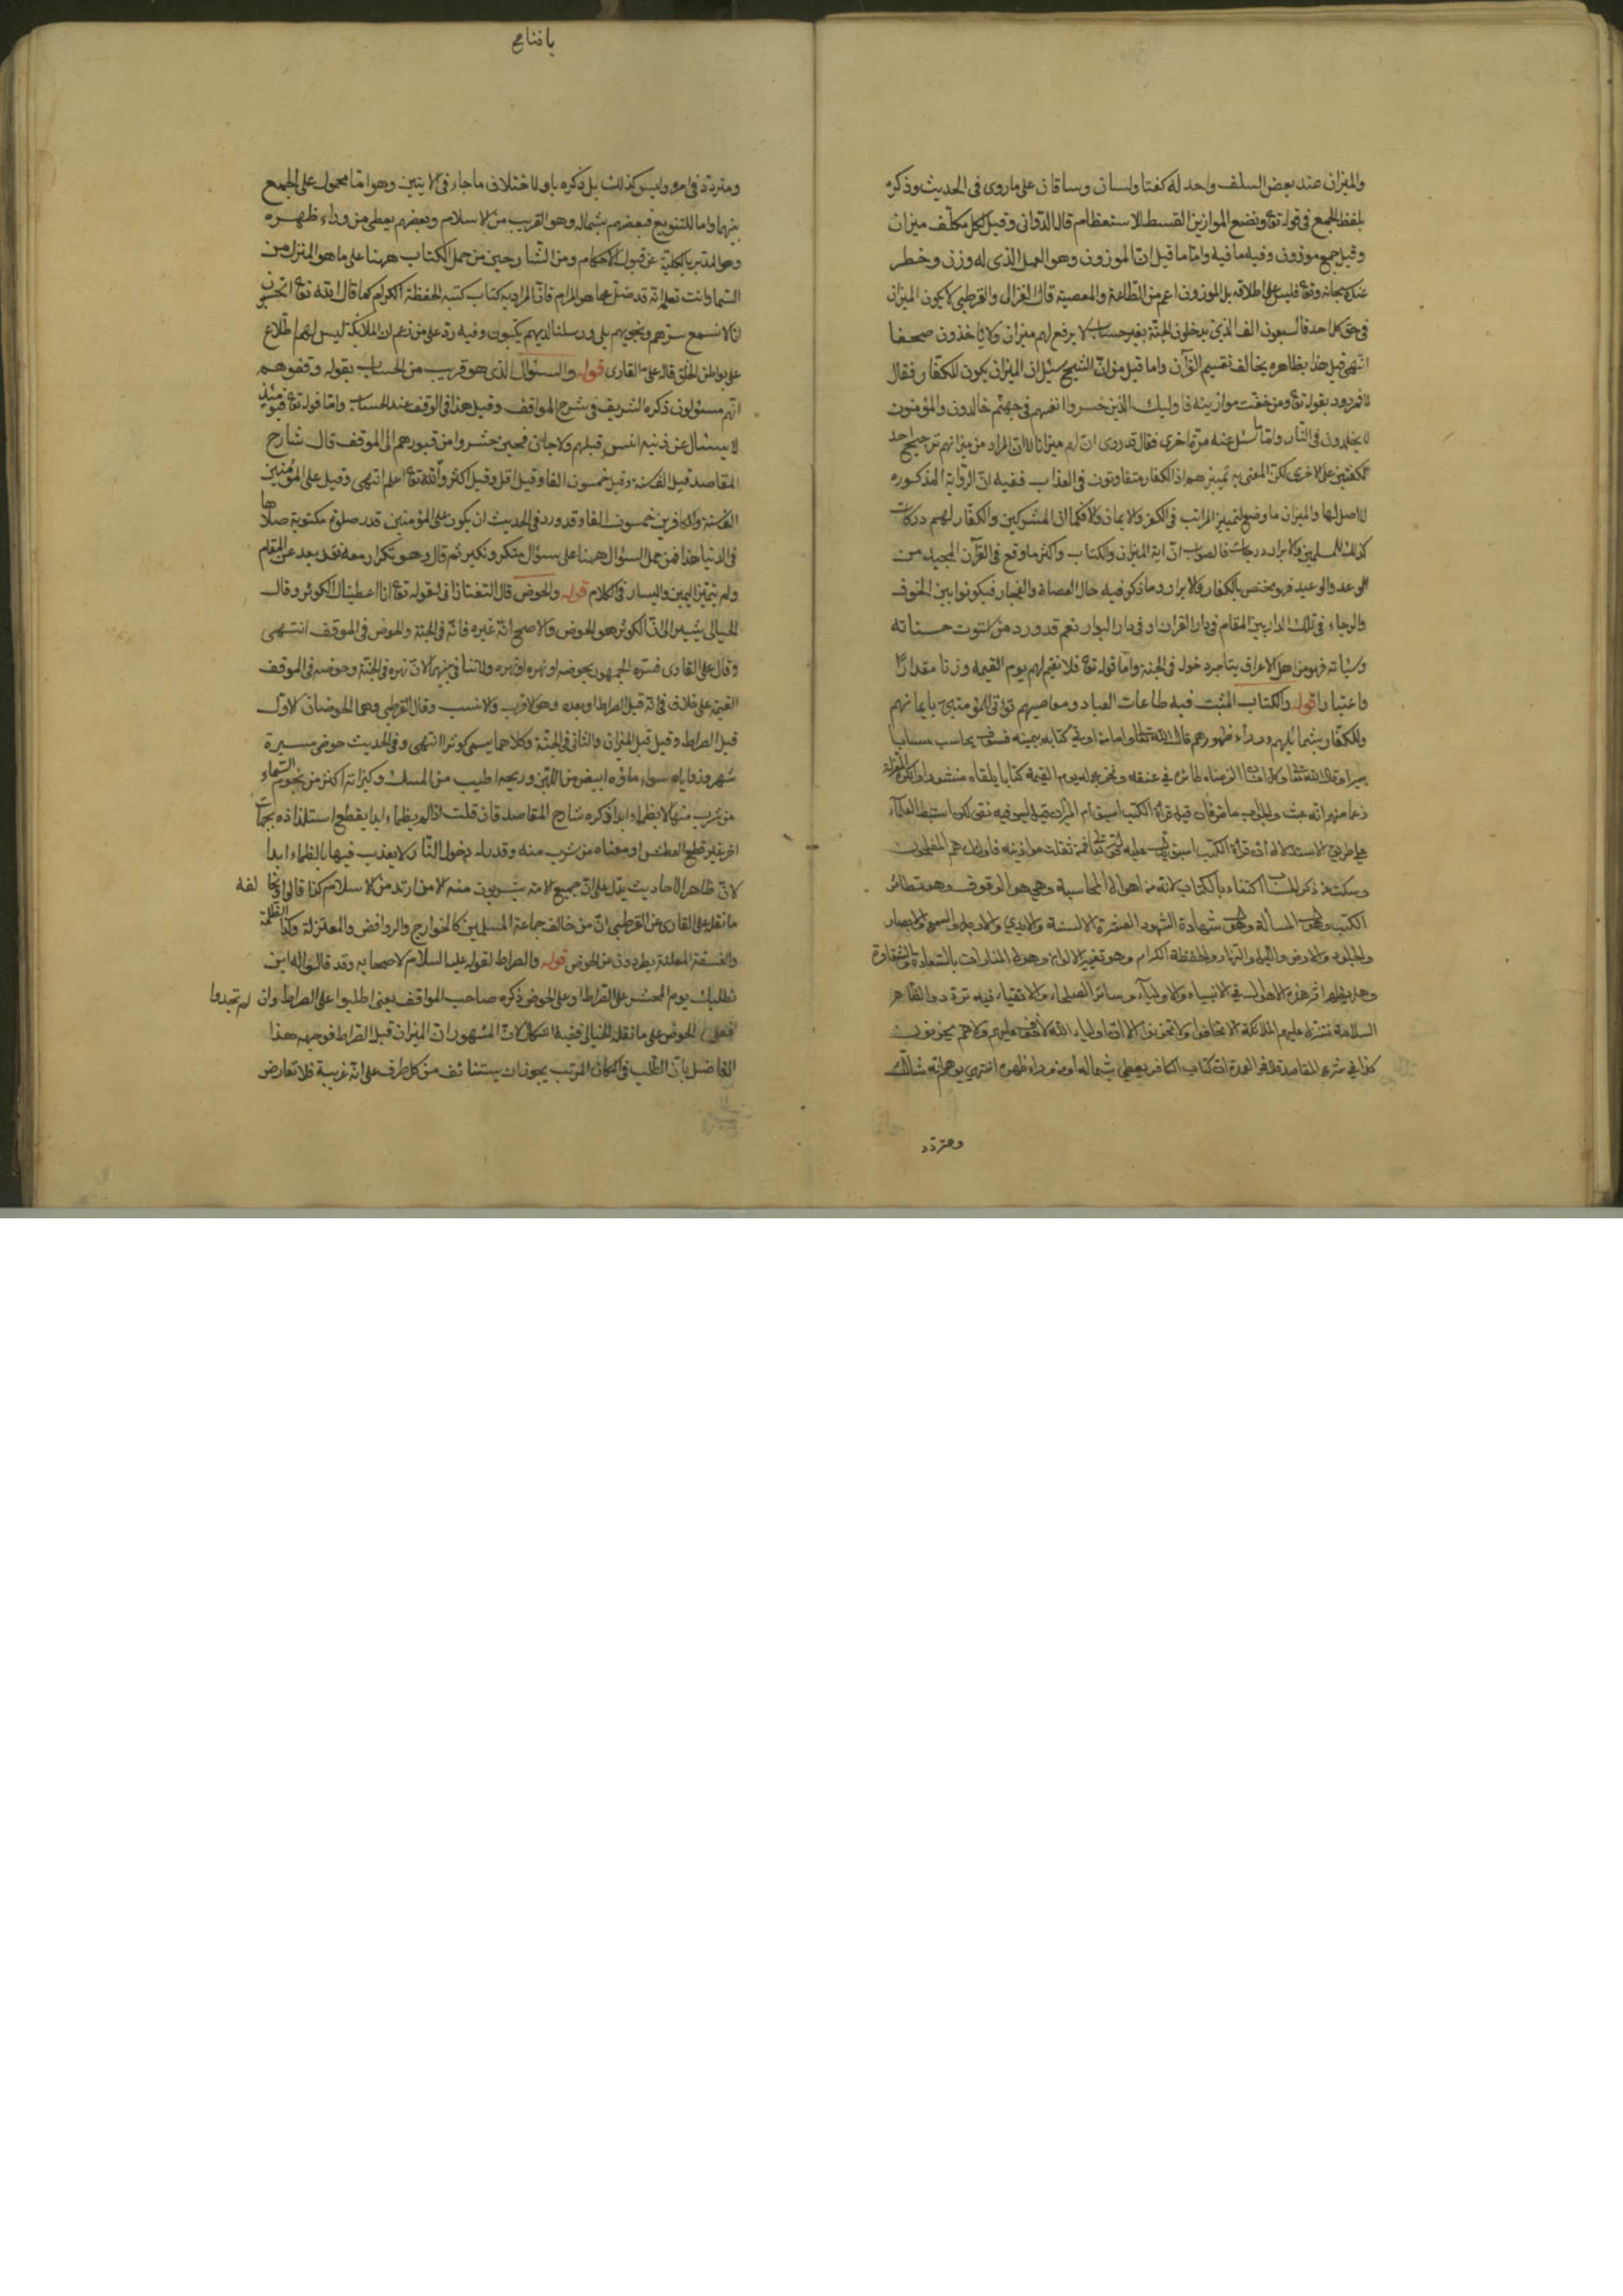 والميزان عند بعض السلف واحد له كفتا ولسان وساقان على ما روى فى الحديث وذكره
بلفظ الجمع فى قوله تع ونضع الموازين القسط للاستعظام قال الدوانى وقيل لكل مكلف ميزان
وقيل جمع موزون وفيه ما فيه واما ما قيل ان الموزون وهو العمل الذى له وزن وخطر
عند الله سبحانه وتع فليس على اطلاقه بل الموزون اعم من الطاعة والمعصية قال الغزالى والقرطبى لا يكون الميزان
فى حق كل احد فالسبعون الف الذين يدخلون الجنة بغير حساب لا يرفع لهم ميزان ولا ياخذون صحفا
انتهى قيل هذا بظاهره يخالف تقسيم القرآن واما قيل من ان الشيخ سئل ان الميزان يكون للكفار فقال
لا فمردود بقوله تع ومن خفت موازينه فاوليك الذين خسروا انفسهم فى جهنم خالدون والمؤمنون
لا يخلدون فى النار واما ما سئل عنه مرة اخرى فقال قد روى ان لهم ميزانا الا ان المراد من ميزانهم ترجيح احد
الكفتين على الاخرى لكن المعنى به تميزهم اذ الكفار متفاوتون فى العذاب ففيه ان الرواية المذكوره
لا اصل لها والميزان ما وضع لتمييز المراتب فى الكفر والايمان والا فكما ان المشركين والكفار لهم دركات
كذلك للمسلمين والابرار درجات فالصواب ان اية الميزان والكتاب واكثر ما وقع فى القرآن المجيد من
الوعد والوعيد فهو مختص بالكفار والابرار وما ذكر فيه حال العصاة والفجار فيكونوا بين الخوف
والرجاء فى تلك الدار بين المقام فى دار القرار او فى دار البوار نعم قد ورد من استوت حسناته
وسيأته فهو من اهل الاعراف يتأخر دخوله فى الجنة واما قوله تع فلا نقيم لهم يوم القيمة وزنا مقدارا
واعتبارا قوله والكتاب المثبت فيه طاعات العباد ومعاصيهم تؤتى للمؤمنين بايمانهم
والكفار بشمائلهم ووراء ظهورهم قال الله تعالى فاما من اوتى كتابه بيمينه فسوف يحاسب حسابا
يسيرا وقال الله تعالى وكل انسان الزمناه طائره فى عنقه ونخرج له يوم القيمة كتابا يلقاه منشورا وانكره المعتزلة
زعما منهم انه عبث والجواب ما مر فان قيل قراة الكتب اسبق ام الميزان قيل ليس فيه نص لكن استنبط العلماء
على طريق الاستدلال ان قراة الكتب اسبق عليه تعالى فمن ثقلت موازينه فاولئك هم المفلحون
وسكت عن ذكر الحساب اكتفاء بالكتاب لانه من اهوال المحاسبة وهى هول الوقوف وهو تطائر
الكتب وهول المسألة وهول شهادة الشهود العشرة الالسنة والايدى والارجل والسمع والابصار
والجلود والارض والليل والنهار والحفظة الكرام وهو تغيير الالوان وهول المنادات بالسعادة والشقاوة
وهل يظهر اثر هذه الاهوال فى الانبياء والاولياء وسائر الصلحاء والاتقياء فيه تردد والظاهر
السلامة تتنزل عليهم الملائكة الا تخافوا ولا تحزنوا الا ان اولياء الله لا خوف عليهم ولا هم يحزنون
كذا فى شرح المقاصد فظاهر العمدة ان كتاب الكافر يعطى بشماله او من وراء ظهره انتهى يوهم انه شاك
ومتردد
يا فتاح
ومتردد فى امره وليس كذلك بل ذكره باو للاختلاف ما جاء فى الايتين وهو اما محمول على الجمع
بينهما واما للتنويع فبعضهم بشماله وهو القريب من الاسلام وبعضهم يعطى من وراء ظهره
وهو المدبر بالكلية عن قبول الاحكام ومن الشارحين من حمل الكتاب ههنا على ما هو المنزل من
السماء وانت تعلم انه قد ضل عما هو المرام فان المراد به كتاب كتبه الحفظة الكرام كما قال الله تع ام يحسبون
انا لا نسمع سرهم ونجويهم بلى ورسلنا لديهم يكتبون وفيه رد على من زعم ان الملائكة ليس لهم اطلاع
على بواطن الخلق قاله على القارى قوله والسئوال الذى هو قريب من الحساب بقوله وقفوهم
انهم مسئولون ذكره الشريف فى شرح المواقف وقيل هذا فى الوقف عند الحساب واما قوله تع فيومئذ
لا يسئال عن ذنبه انس قبلهم ولا جان فحين حشروا من قبورهم الى الموقف قال شارح
المقاصد قيل الف سنة وقيل خمسون الفا وقيل اقل وقيل اكثر والله تع اعلم انتهى وقيل على المؤمنين
الف سنة والكافرين خمسون الفا وقد ورد فى الحديث ان يكون على المؤمنين قدر صلوة مكتوبة صلاها
فى الدنيا هذا فمن حمل السئوال ههنا على سئوال منكر ونكير ثم قال وهو تكرار معه فقد بعد عن المقام
ولم يتميز اليمين واليسار فى الكلام قوله والحوض قال التفتازانى لقوله تع انا اعطيناك الكوثر وقال
الخيالى يشير الى ان الكوثر هو الحوض والاصح انه غيره فانه فى الجنة والحوض فى الموقف انتهى
وقال على القارى فسره الجمهور بحوضه او نهره ولا تنافى بينهما لان نهره فى الجنة وحوضه فى الموقف
القيمة على خلاف فى انه قبل الصراط او بعده وهو الاقرب والانسب وقال القرطبى وهما الحوضان الاول
قبل الصراط وقيل قبل الميزان والثانى فى الجنة وكلاهما يسمى كوثرا انتهى وفى الحديث حوضى مسيرة
شهر وزواياه سواء ماؤه ابيض من اللبن وريحه اطيب من المسك وكيزانه اكثر من نجوم السماء
من شرب منها لا يظماء ابدا ذكره شارح المقاصد فان قلت اذا لم يظماء ابدا يقطع استلذاذه
لغير قطع العطش او معناه من شرب منه وقدر له دخول النار لا يعذب فيها بالظماء ابدا
لان ظاهر الاحاديث يدل على ان جميع الامة يشربون منه الا من ارتد من الاسلام كذا قالوا
ما نقله على القارى عن القرطبى ان من خالف جماعة المسلمين كالخوارج والروافض والمعتزلة وكذا الظلمة
والفسقة المعلنة يطردون عن الحوض قوله والصراط لقوله عليه السلام لاصحابه وقد قالوا له اين
نطلبك يوم المحشر على الصراط او على الحوض ذكره صاحب المواقف يعنى اطلبوا على الصراط وان لم تجدوا
فعلى الحوض على ما نقله الخيالى ففيه اشكال لان المشهور ان الميزان قبل الصراط فوجهه هذا
الفاضل بان الطلب فى المكان المرتب يجوز ان يستئانف من كل طرف على انه غريبة فلا تعارض